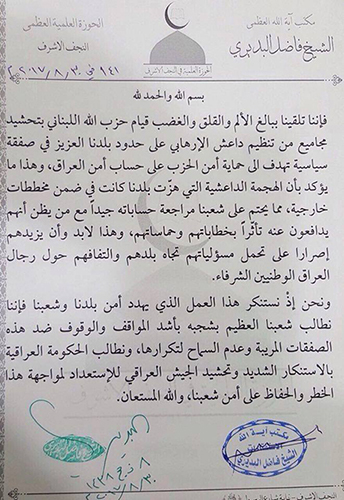 مكتب آية الله العظمى
الشيخ فاضل البديري
الحوزة العلمية العظمى
النجف الاشرف
الحوزة العلمية في النجف الاشرف
١٤١ في ٣٠ / ٨ / ٢٠١٧
بسم الله والحمد لله
فإننا تلقينا ببالغ الألم والقلق والغضب قيام حزب الله اللبناني بتحشيد
مجاميع من تنظيم داعش الإرهابي على حدود بلدنا العزيز في صفقة
سياسية تهدف الى حماية أمن الحزب على حساب أمن العراق، وهذا ما
يؤكد بأن الهجمة الداعشية التي هزّت بلدنا كانت في ضمن مخططات
خارجية، مما يحتم على شعبنا مراجعة حساباته جيداً مع من يظن أنهم
يدافعون عنه بخطاباتهم وحماساتهم، وهذا لابد وأن يزيدهم
إصرارا على تحمل مسؤلياتهم تجاه بلدهم والتفافهم حول رجال
العراق الوطنيين الشرفاء.
ونحن إذْ نستنكر هذا العمل الذي يهدد أمن بلدنا وشعبنا فإننا
نطالب شعبنا العظيم بشجبه بأشد المواقف والوقوف ضد هذه
الصفقات المريبة وعدم السماح لتكرارها، ونطالب الحكومة العراقية
بالاستنكار الشديد وتحشيد الجيش العراقي للإستعداد لمواجهة هذا
الخطر والحفاظ على أمن شعبنا، والله المستعان.
فاضل البديري
٨ ذي حجة ١٤٣٨
٣٠ / ٨ / ٢٠١٧
مكتب آية الله
الشيخ فاضل البديري
النجف الأشرف